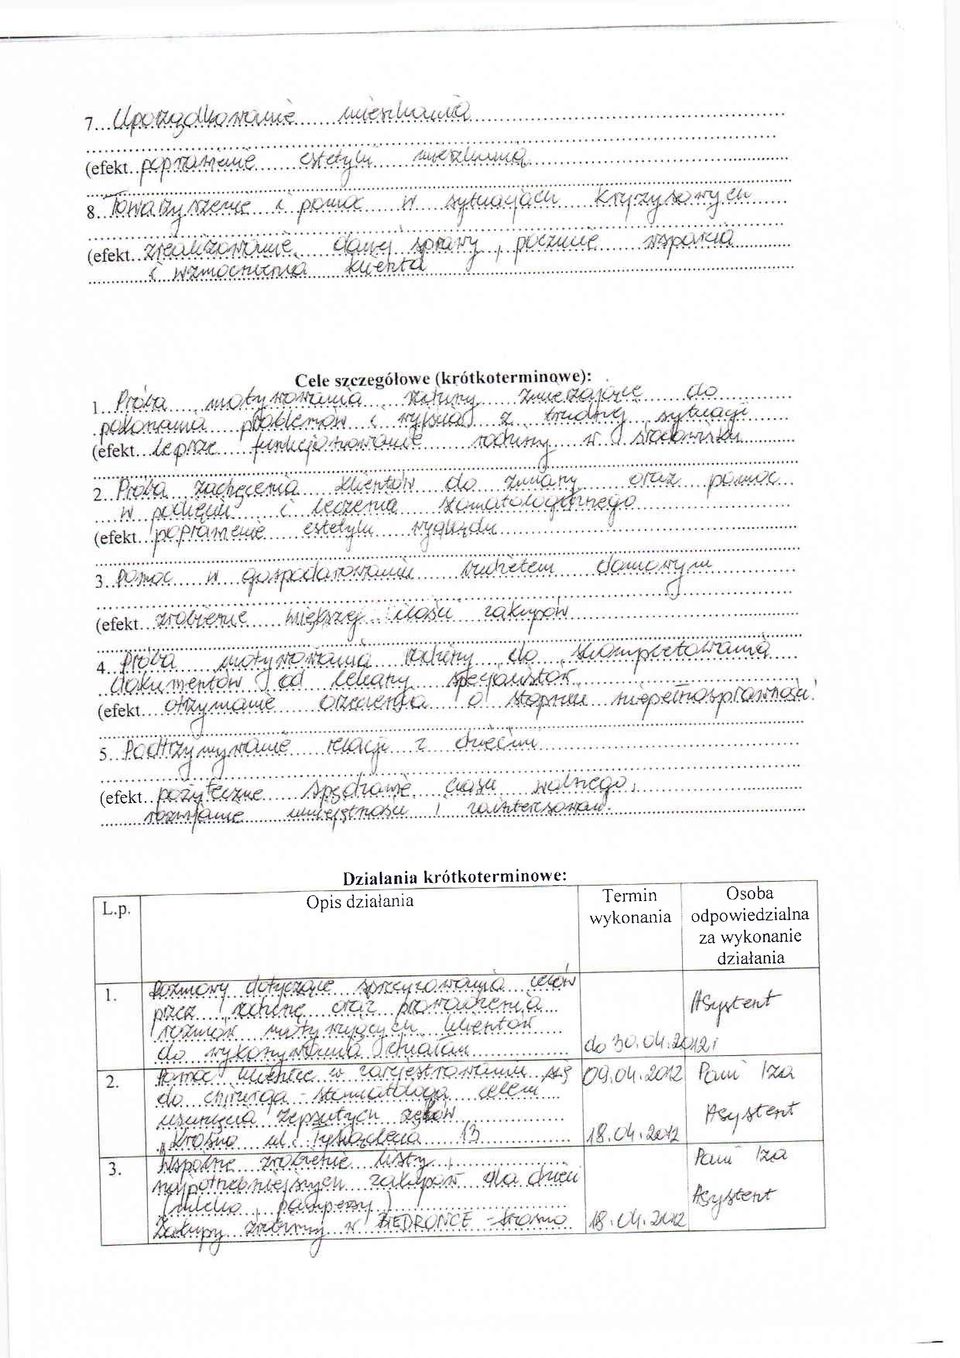 7. Uporządkowanie mieszkania
(efekt poprawienie estetyki mieszkania
8. Towarzyszenie i pomoc w sytuacjach kryzysowych
(efekt zrealizowanie danej sprawy, poczucie wsparcia
i wzmocnienia klienta
Cele szczegółowe (krótkoterminowe):
1. Próba motywowania rodziny zmierzające do
pokonania problemów i wyjścia z trudnej sytuacji
(efekt lepsze funkcjonowanie rodziny w środowisku
2. Próba zachęcenia klientów do zmiany oraz pomoc
w podjęciu i leczenia stomatologicznego
(efekt poprawienie estetyki wyglądu
3. Pomoc w gospodarowaniu budżetem domowym
(efekt zrobienie większej ilości zakupów
4. Próba motywowania rodziny do skompletowania
dokumentów od lekarzy specjalistów
(efekt otrzymanie orzeczenia o stopniu niepełnosprawności
5. Podtrzymywanie relacji z dziećmi
(efekt pożyteczne spędzanie czasu wolnego,
rozwijanie umiejętności i zainteresowań
Działania krótkoterminowe:
L.p. Opis działania Termin wykonania Osoba odpowiedzialna za wykonanie działania
1. Rozmowy dotyczące sprecyzowania celów
przez rodzinę oraz prowadzenia
rozmów motywujących klientów
do wykonywania działań do 30.04.2012r Asystent
2. Pomoc klientce w zarejestrowaniu się
do chirurga - stomatologa celem
usunięcia zepsutych zębów
Krosno ul. 09.04.2012 18.04.2012 Pani Iza Asystent
3. Wspólne zrobienie listy
najpotrzebniejszych zakupów dla dzieci
(mleko, pampersy)
Zakupy zrobimy w BIEDRONCE - Krosno 18.04.2012 Pani Iza Asystent